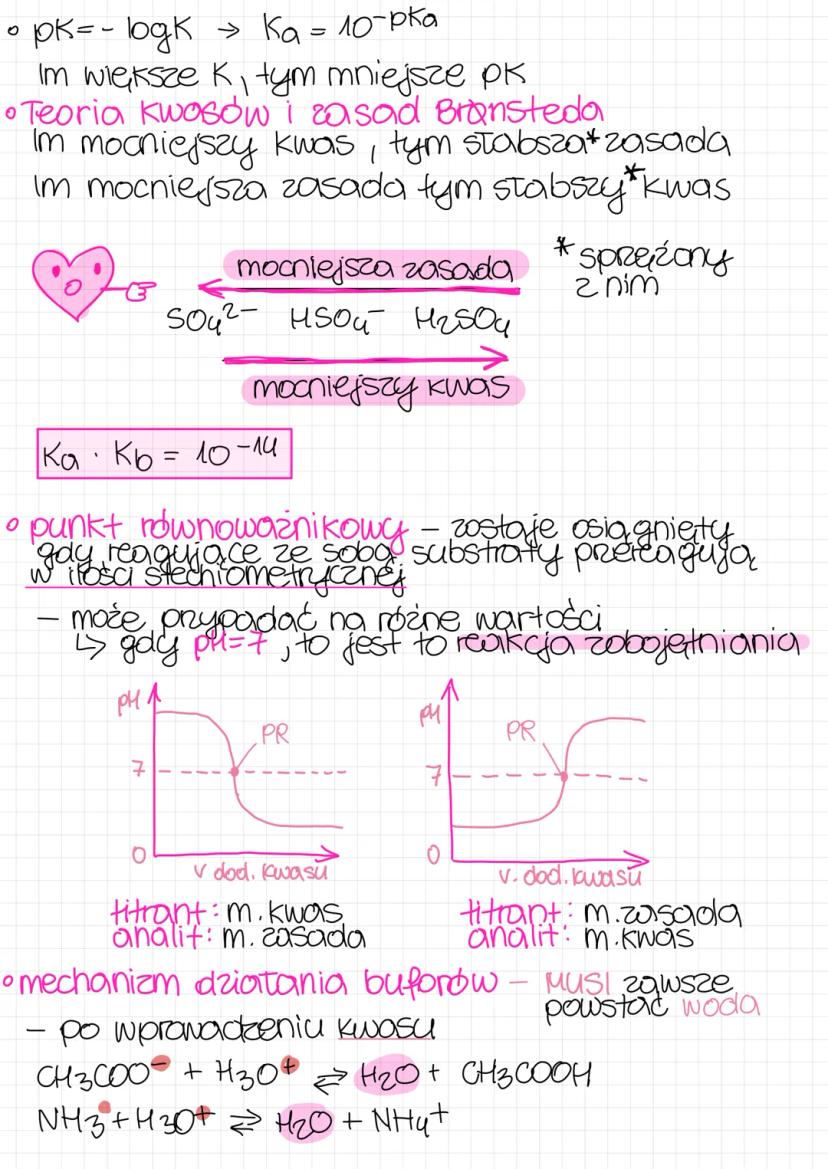 • pK=-logK → Ka = 10^-pKa
Im większe K, tym mniejsze pK
• Teoria kwasów i zasad Brønsteda
Im mocniejszy kwas, tym słabsza* zasada
Im mocniejsza zasada tym słabszy* kwas
mocniejsza zasada
* sprzężony
z nim
SO4^2- HSO4^- H2SO4
mocniejszy kwas
Ka · Kb = 10^-14
• punkt równoważnikowy – zostaje osiągnięty
gdy reagujące ze sobą substraty przereagują
w ilości stechiometrycznej
– może przypadać na różne wartości
↳ gdy pH=7, to jest to reakcja zobojętniania
pH
PR
7
0
v dod. kwasu
titrant: m. kwas
analit: m. zasada
pH
PR
7
0
v. dod. kwasu
titrant: m. zasada
analit: m. kwas
• mechanizm działania buforów – MUSI zawsze
powstać woda
– po wprowadzeniu kwasu
CH3COO^- + H3O^+ ⇄ H2O + CH3COOH
NH3 + H3O^+ ⇄ H2O + NH4^+